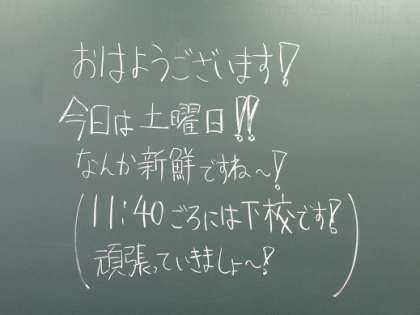 おはようございます!
今日は土曜日!!
なんか新鮮ですね〜!
(11:40ごろには下校です!
頑張っていきましょ〜!)